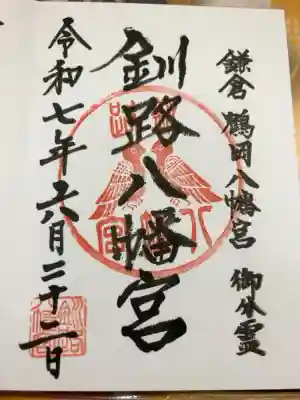 鎌倉 鶴岡八幡宮 御分霊
釧路八幡宮
令和七年六月二十二日